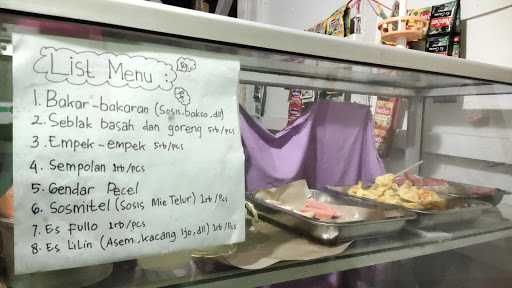 List Menu :
1. Bakar-bakaran (Sosis, bakso, dll)
2. Seblak basah dan goreng 5rb/pcs
3. Empek-empek 5rb/pcs
4. Sempolan 1rb/pcs
5. Gendar Pecel
6. Sosmitel (Sosis Mie Telur) 2rb/Pcs
7. Es Fullo 1rb/pcs
8. Es Lilin (Asem, kacang Ijo, dll) 1rb/Pcs